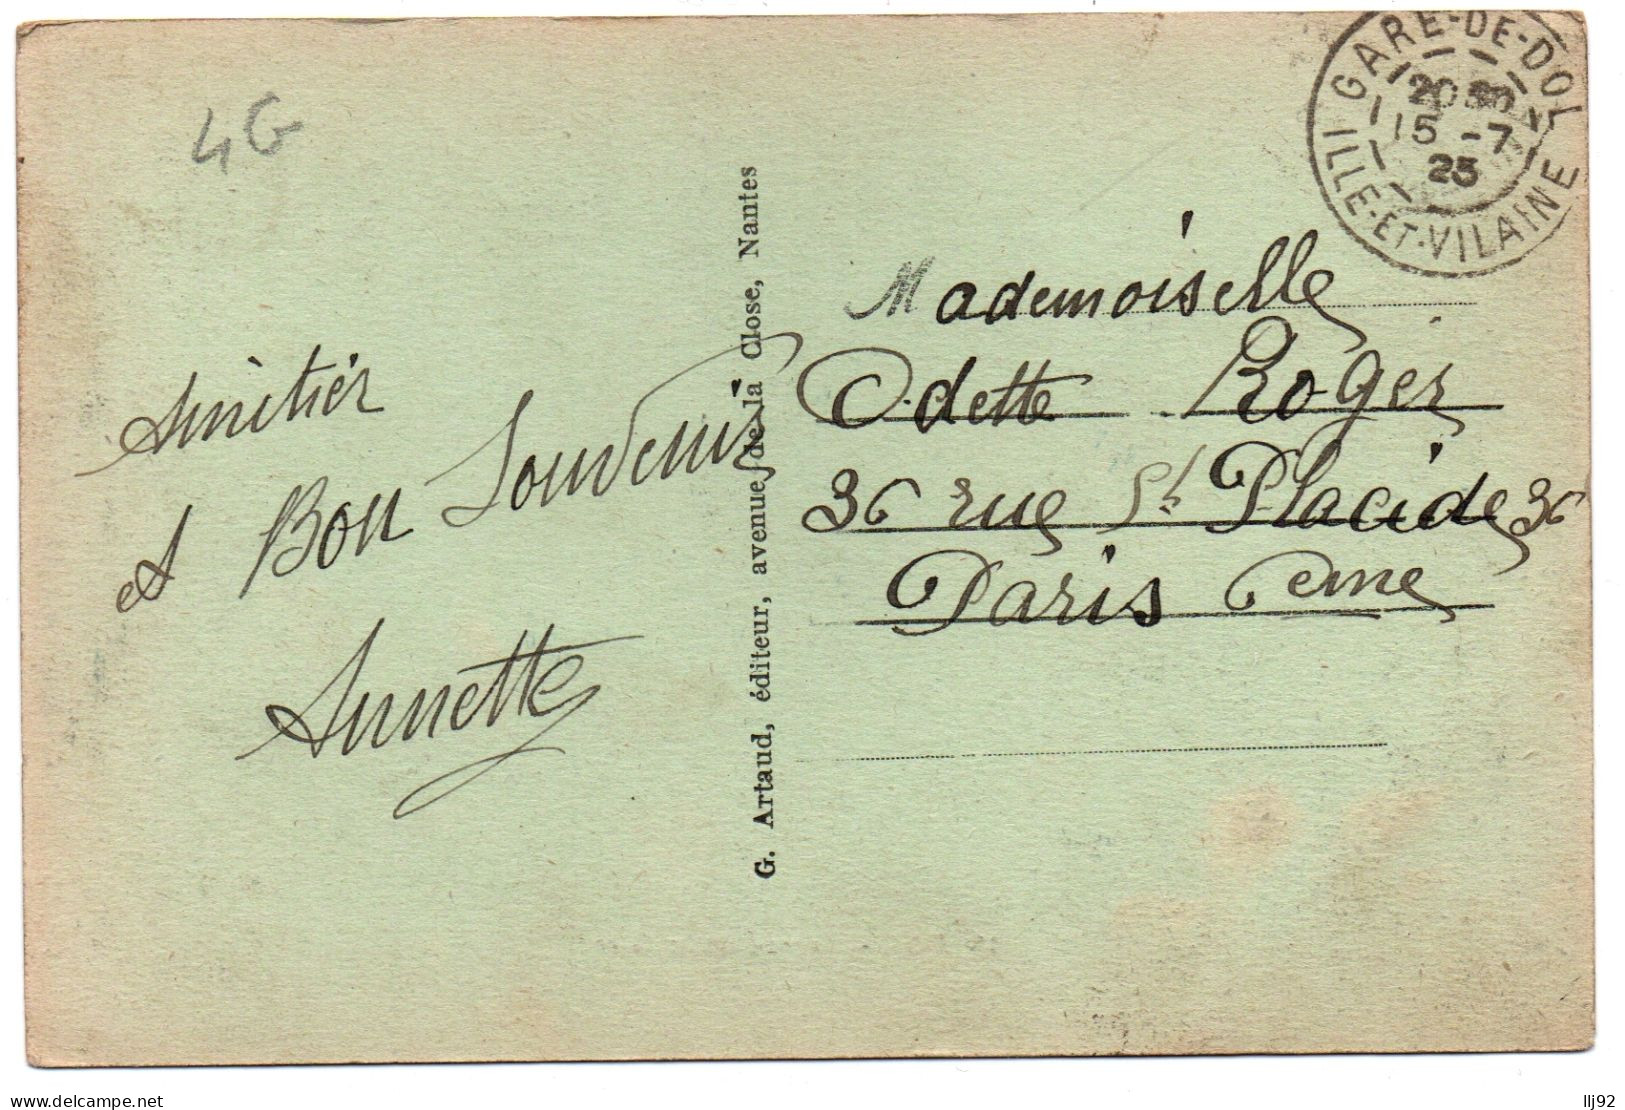 4G
GARE-DE-DOL
20 30
15 -7
25
ILLE-ET-VILAINE
Amitiés
et Bon Souvenir
Annette
G. Artaud, éditeur, avenue de la Close, Nantes
Mademoiselle
Odette Roger
36 rue St Placide 36
Paris 6eme
www.delcampe.net
llj92